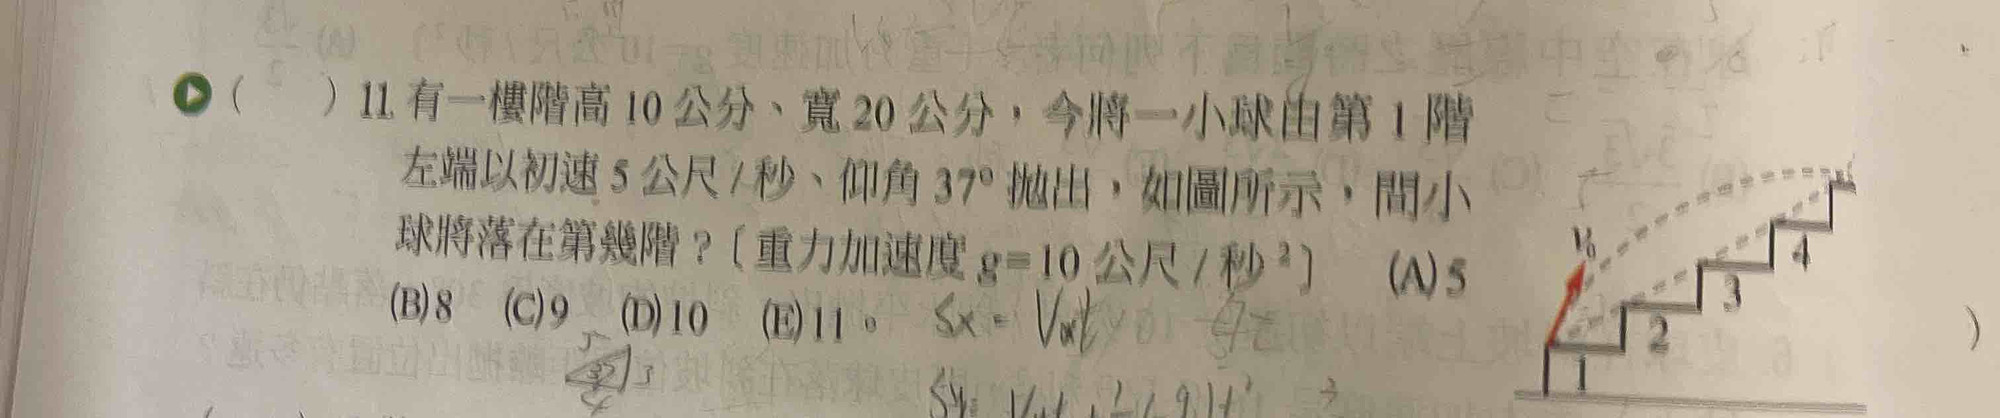 ( ) 11 有一樓階高 10 公分、寬 20 公分，今將一小球由第 1 階
左端以初速 5 公尺/秒、仰角 37° 拋出，如圖所示，問小
球將落在第幾階？〔重力加速度 g=10 公尺/秒²〕 (A) 5
(B) 8 (C) 9 (D) 10 (E) 11。
Sx = Vxt
5
37
3
4
V₀
1
2
3
4
)